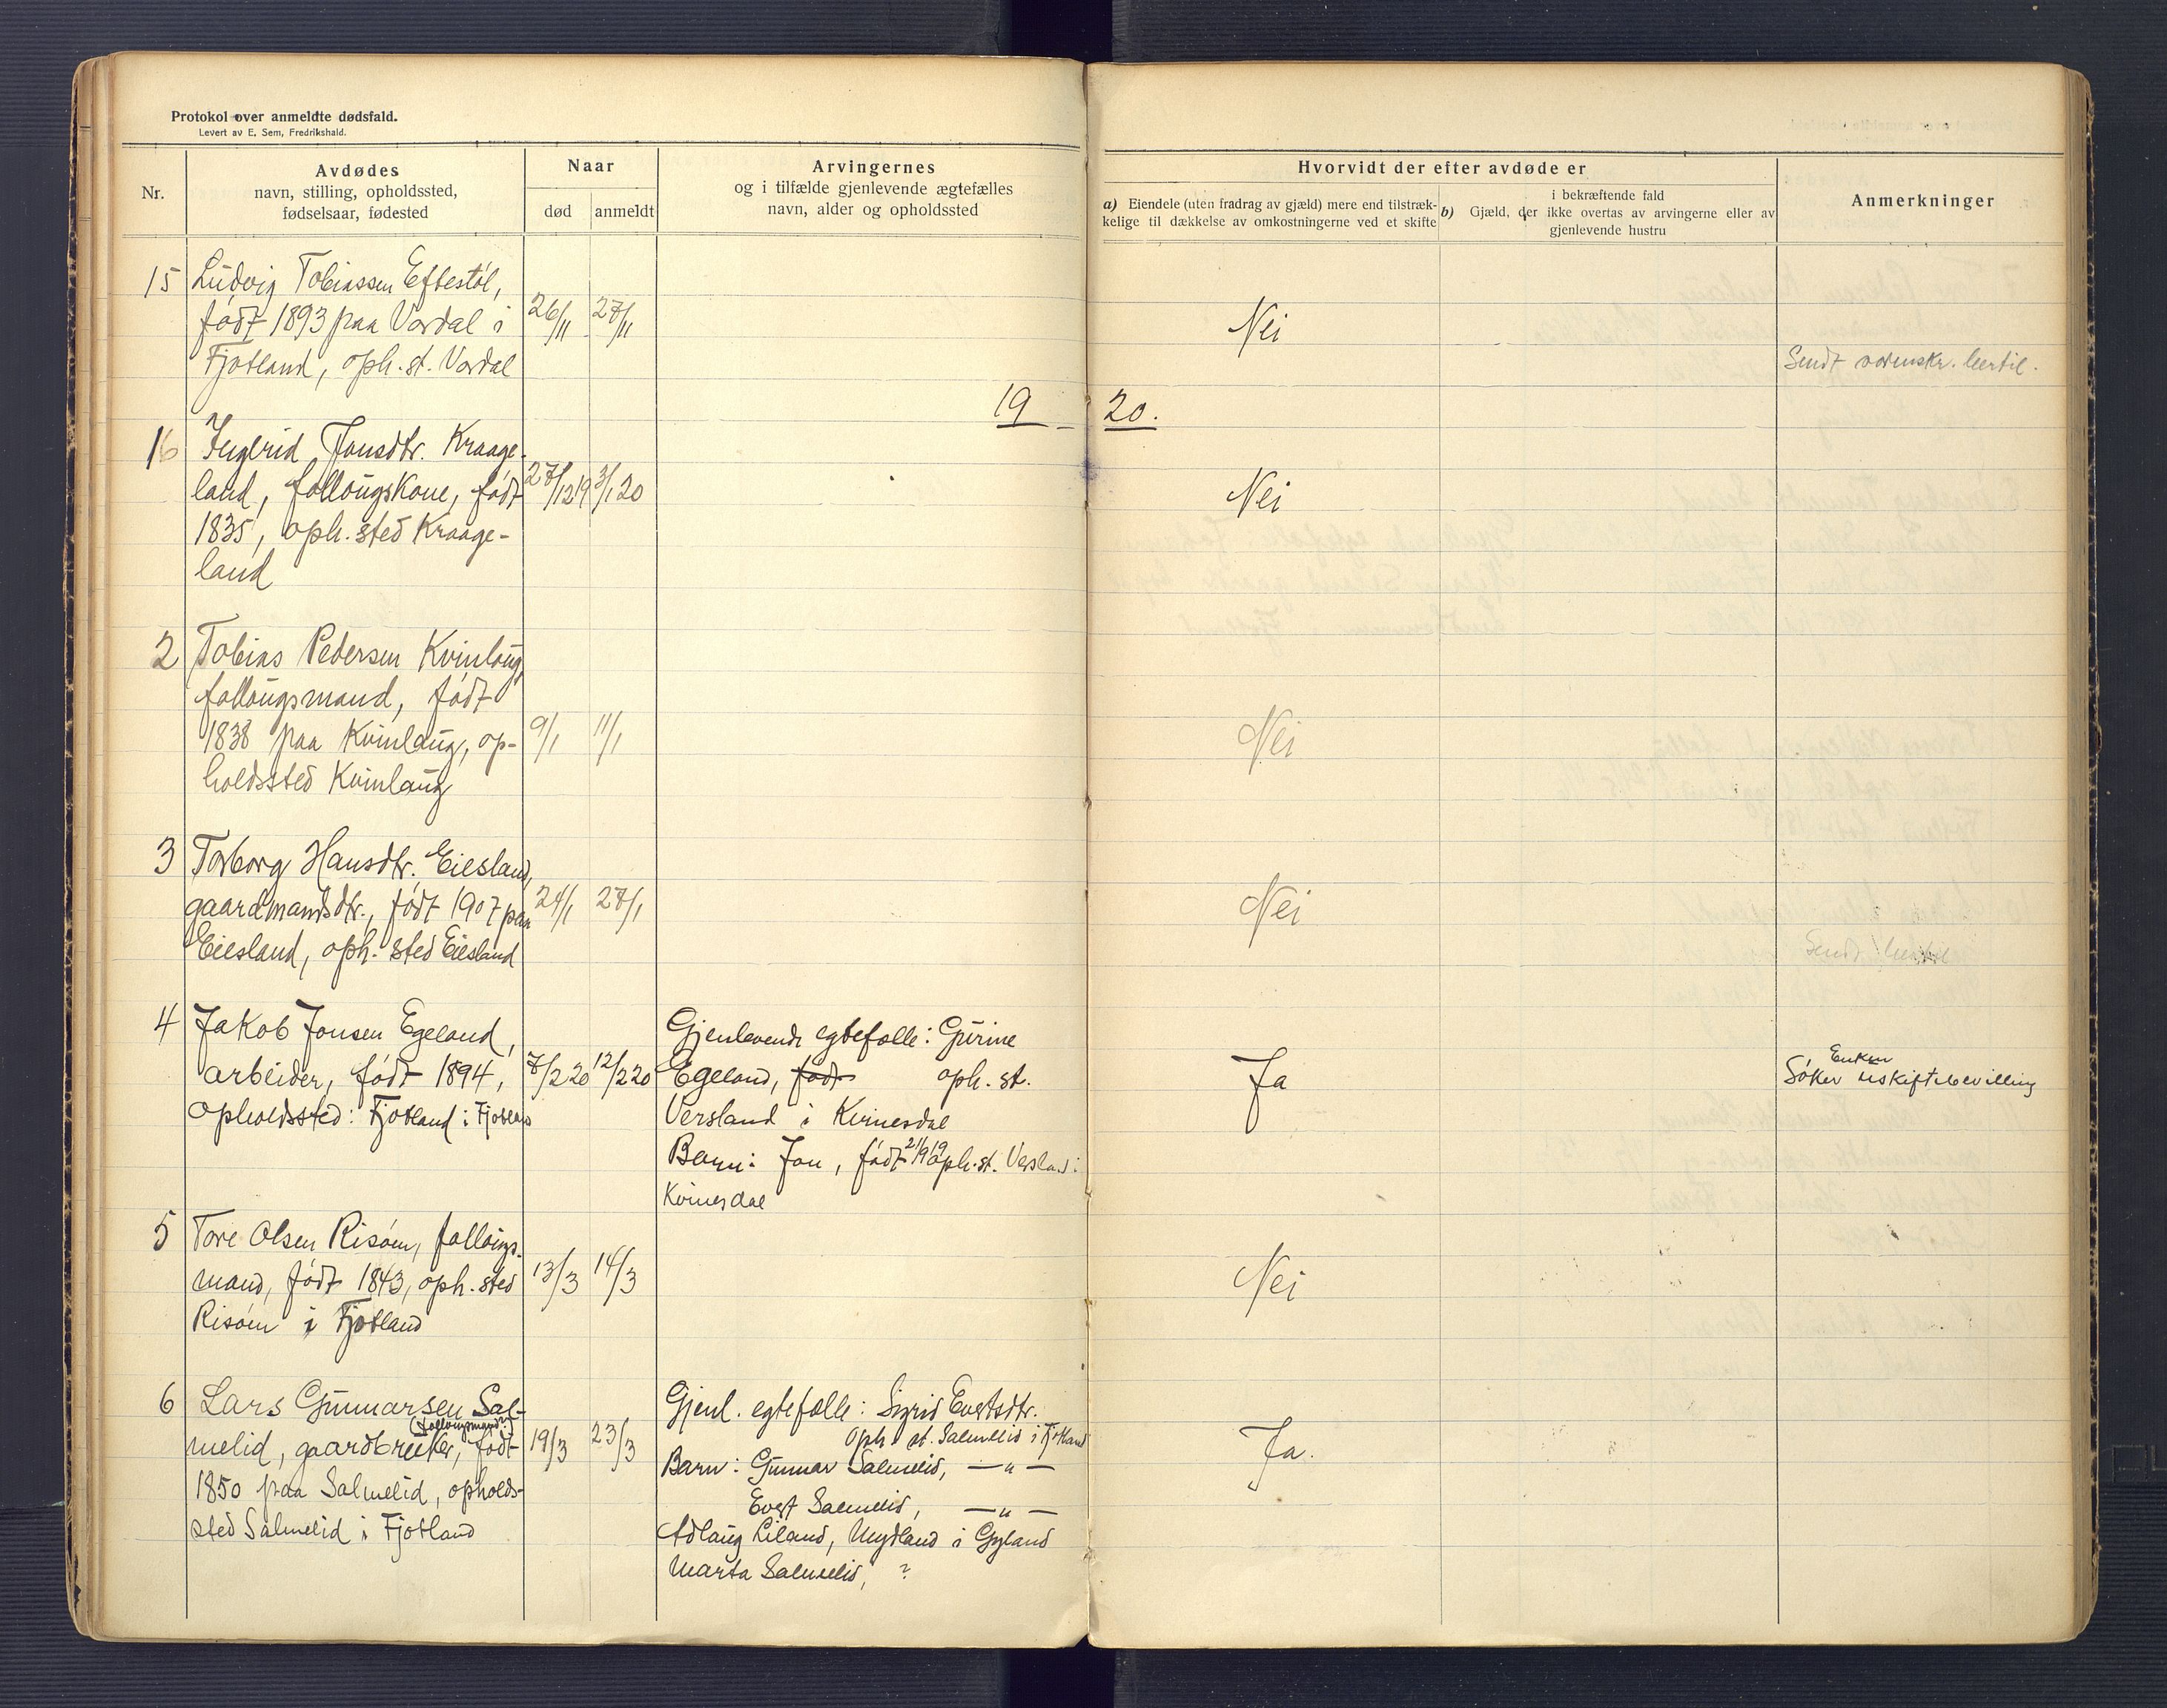 Protokol over anmeldte dødsfald.
Levert av E. Sem, Fredrikshald.
Nr.
Avdødes
navn, stilling, opholdssted,
fødselsaar, fødested
Naar
død
anmeldt
Arvingernes
og i tilfælde gjenlevende ægtefælles
navn, alder og opholdssted
Hvorvidt der efter avdøde er
a) Eiendele (uten fradrag av gjæld) mere end tilstræk-
kelige til dækkelse av omkostningerne ved et skifte
i bekræftende fald
b) Gjæld, der ikke overtas av arvingerne eller av
gjenlevende hustru
Anmerkninger
15 Ludvig Tobiassen Eftestøl,
født 1893 paa Vordal i 26/11 27/11 Nei
Fjotland, oph. st. Vordal
Sendt sorenskr. hertil.
19 20.
16 Ingbrid Jonsdtr. Kraage-
land, følloügskone, født 27/12 19 3/1 20 Nei
1835, oph. sted Kraage-
land
2 Tobias Pedersen Kvinlaüg,
følloügsmand, født
1838 paa Kvinlaüg, op- 9/1 11/1 Nei
holdssted Kvinlaüg
3 Torborg Hansdtr. Eiesland,
gaardmandsdtr., født 1907 paa 24/1 27/1 Nei
Eiesland, oph. sted Eiesland
Sendt hertil
4 Jakob Jonsen Egeland,
arbeider, født 1894, 7/2 20 12/2 20
opholdssted: Fjotland i Fjotland
Gjenlevende egtefælle: Gürine
Egeland, født oph. st.
Versland i Kvinesdal
Barn: Jon, født 2/9 19 oph. st. Versland i
Kvinesdal
Ja
Enken
Søker uskiftebevilling
5 Tore Olsen Risøm, følloügs-
mand, født 1843, oph. sted 13/3 14/3 Nei
Risøm i Fjotland
6 Lars Gunnarsen Sal-
(følloügsmand)
melid, gaardbruker, født 19/3 23/3
1850 paa Salmelid, opholds-
sted Salmelid i Fjotland
Gjenl. egtefælle: Sigrid Evertsdtr.
oph. st. Salmelid i Fjotland
Barn: Gunnar Salmelid, — " —
Evert Salmelid, — " —
Adlaüg Liland, Mydland i Gyland
Marta Salmelid, ?
Ja.